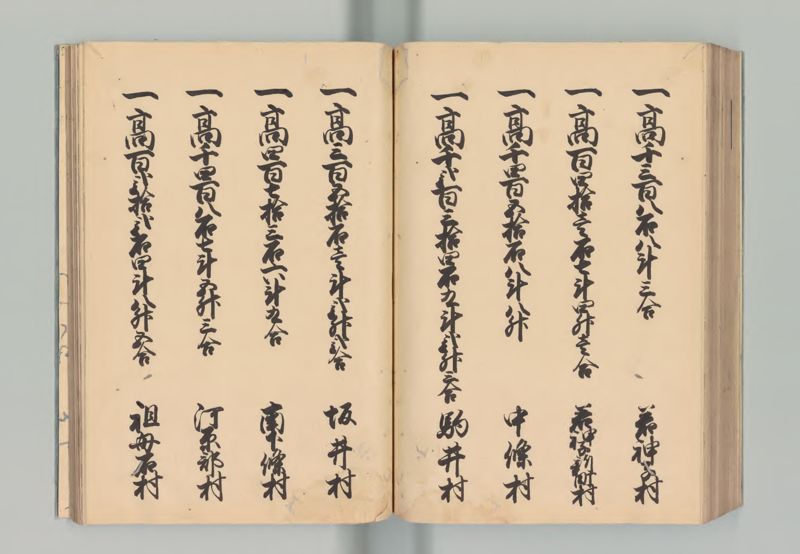 一高千三百八石八斗三合 若神子村
一高百四拾壱石七斗四升壱合 若神子新町村
一高千四百五拾石八斗八升 中條村
一高千弐百三拾四石九斗弐升三合 駒井村
一高三百五拾石壱斗弐升弐合 坂井村
一高四百七拾三石六斗九合 南下條村
一高千四百八石七斗五升三合 河原部村
一高百弐拾弐石四斗八升五合 祖母石村